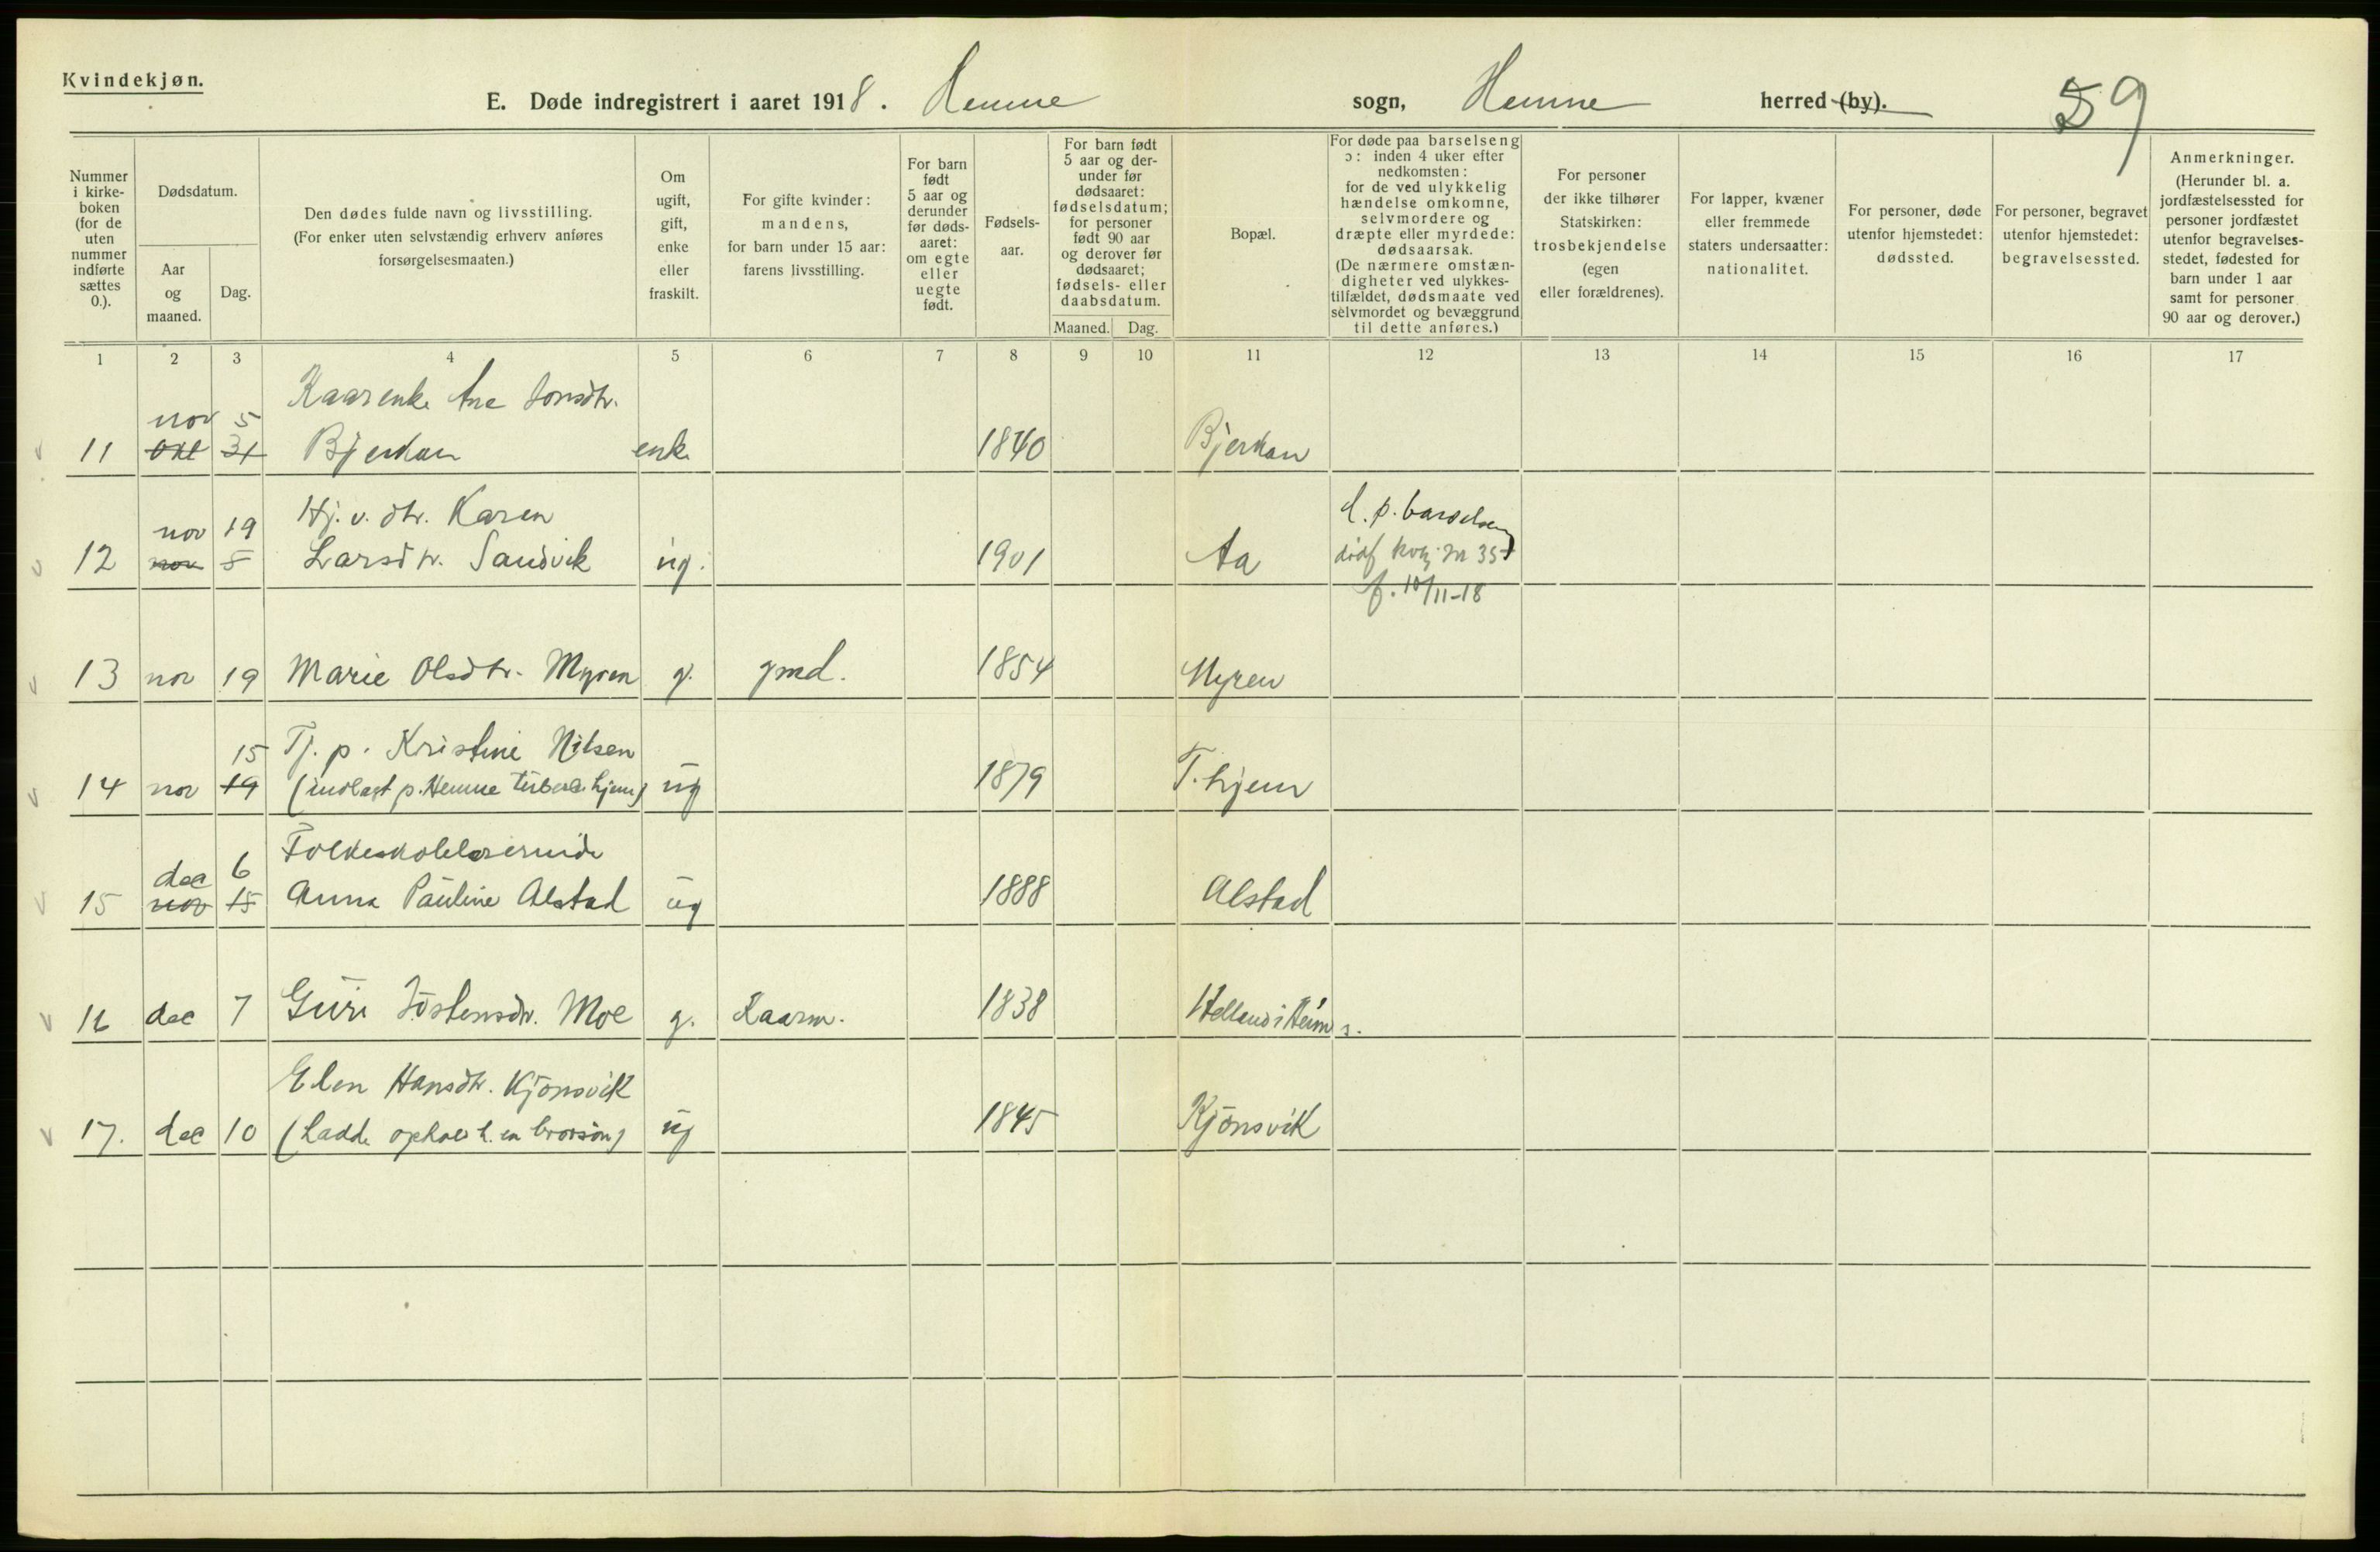 Kvindekjøn.
E. Døde indregistrert i aaret 1918. Hemne sogn, Hemne herred (by).
59
Nummer i kirke-boken (for de uten nummer indførte sættes 0.).
Dødsdatum.
Aar og maaned.
Dag.
Den dødes fulde navn og livsstilling.
(For enker uten selvstændig erhverv anføres forsørgelsesmaaten.)
Om ugift, gift, enke eller fraskilt.
For gifte kvinder: mandens, for barn under 15 aar: farens livsstilling.
For barn født 5 aar og derunder før døds-aaret: om egte eller uegte født.
Fødsels-aar.
For barn født 5 aar og der-under før dødsaaret: fødselsdatum; for personer født 90 aar og derover før dødsaaret; fødsels- eller daabsdatum.
Maaned. Dag.
Bopæl.
For døde paa barselseng ɔ: inden 4 uker efter nedkomsten: for de ved ulykkelig hændelse omkomne, selvmordere og dræpte eller myrdede: dødsaarsak.
(De nærmere omstæn-digheter ved ulykkes-tilfældet, dødsmaate ved selvmordet og bevæggrund til dette anføres.)
For personer der ikke tilhører Statskirken: trosbekjendelse (egen eller forældrenes).
For lapper, kvæner eller fremmede staters undersaatter: nationalitet.
For personer, døde utenfor hjemstedet: dødssted.
For personer, begravet utenfor hjemstedet: begravelsessted.
Anmerkninger.
(Herunder bl. a. jordfæstelsessted for personer jordfæstet utenfor begravelses-stedet, fødested for barn under 1 aar samt for personer 90 aar og derover.)
1 2 3 4 5 6 7 8 9 10 11 12 13 14 15 16 17
Kaarenke Ane Jonsdtr.
nov 5
11 okt 31 Bjerkan enke 1840 Bjerkan
nov 19 Hj. v. dtr. Karen d. p. barselseng
12 nov 5 Larsdtr. Sandvik ug. 1901 Aa dødf 35
f. 10/11-18
13 nov 19 Marie Olsdtr. Myren g. gmd. 1854 Myren
15 Tj. p. Kristine Nilsen
14 nov 19 (indlagt p. Hemne tuberk. hjem) ug 1879 T. hjem
dec 6 Folkeskolelærerinde
15 nov 15 Anna Pauline Alstad ug 1888 Alstad
16 dec 7 Guri Jostensdtr. Moe g. Kaarm. 1838 Helland i Heim s.
Elen Hansdtr. Kjønsvik
17. dec 10 (hadde ophold h. en brorsøn) ug 1845 Kjønsvik